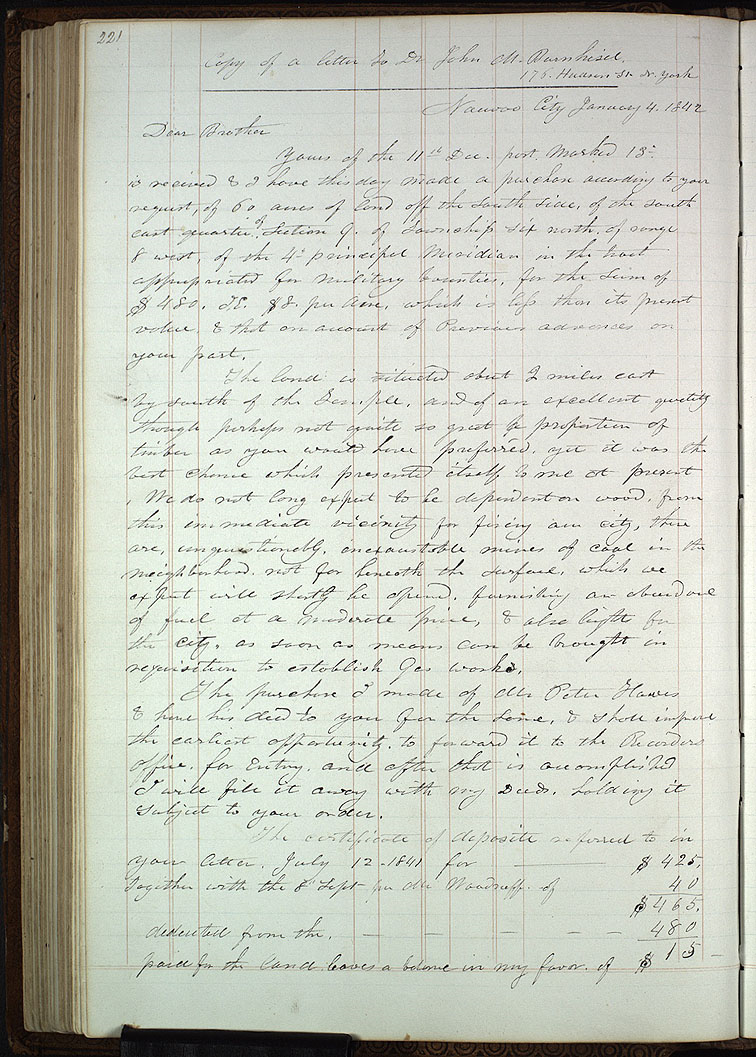 221
Copy of a letter to Dr John M. Barnhisel.
176. Hudson St. N. York
Nauvoo City January 4. 1842
Dear Brother
Yours of the 11th Dec. post. Marked 13th
is received & I have this day made a purchase according to your
request, of 60 acres of land off the South side, of the South
east quarter, of Section 9. of Township six north, of range
8 west, of the 4th principal Meridian in the tract
appropriated for Military bounties, for the Sum of
$480. I.E. $8. per Acre, which is less than its present
value, & that on account of Previous advances on
your part.
The land is situated about 2 miles east
by south of the Temple, and of an excellent quality
though perhaps not quite so great a proportion of
timber as you would have preferred, yet it was the
best chance which presented itself to me at present
, We do not long expect to be dependent on wood, from
this immediate vicinity for firing our city, there
are, unquestionably, enexaustable mines of coal in the
neighborhood. not far beneath the surface, which we
expect will shortly be opend, furnishing an abundance
of fuel at a moderate price, & also light for
the city, as soon as means can be brought in
requisition to establish Gas works,
The purchase I made of Mr Peter Hawes
& have his deed to you for the same, & shall improve
the earliest opportunity, to forward it to the Recorders
office, for Entry. and after that is accomplished
I will file it away with my Deeds, holding it
subject to your order.
The certificate of deposite referred to in
your letter, July 12 - 1841 for — $425.
Together with the 8th Sept per Mr Woodruff. of 40
$465.
deducted from the. — — — — — — 480
paid for the land leaves a balance in my favor. of $15 —